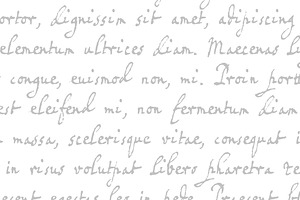 tortor, dignissim sit amet, adipiscing
elementum ultrices diam. Maecenas li
congue, euismod non, mi. Proin port
est eleifend mi, non fermentum diam
massa, scelerisque vitae, consequat i
in risus volutpat libero pharetra te
egestas leo in pede. Praesent